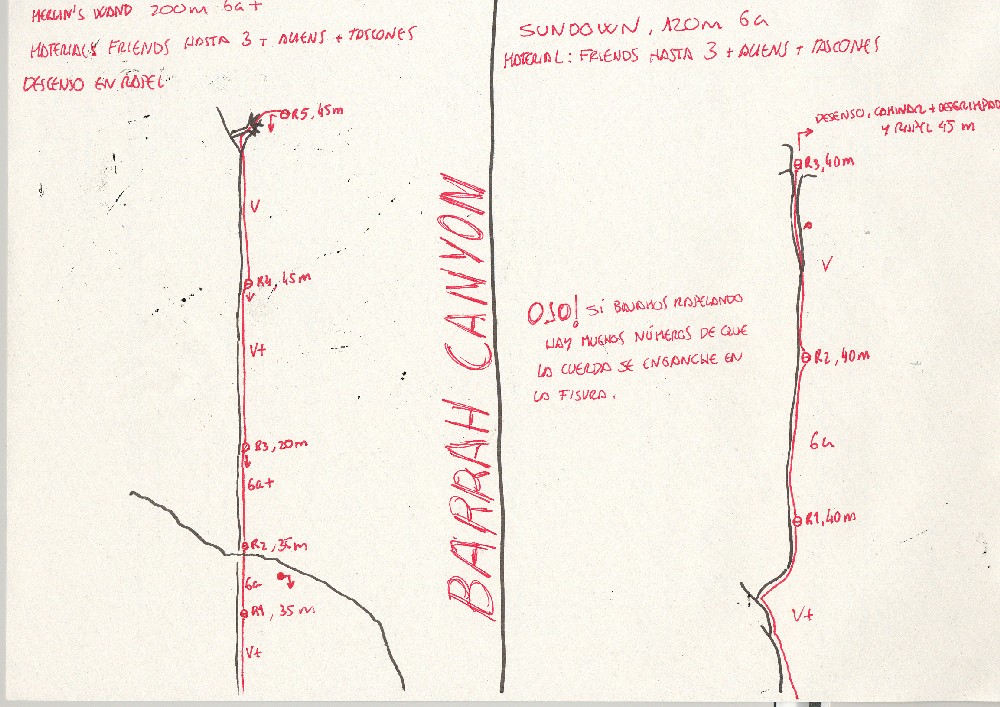 MERLIN'S WAND 200m 6a+
MATERIAL: FRIENDS HASTA 3 + ALIENS + TASCONES
DESCENSO EN RAPEL
R5, 45m
V
R4, 45m
V+
R3, 20m
6a+
R2, 35m
6a
R1, 35m
V+
BARRAH CANYON
SUNDOWN, 120m 6a
MATERIAL: FRIENDS HASTA 3 + ALIENS + TASCONES
DESENSO, CAMINAR + DESTREPAR
Y RAPEL 45 m
R3, 40m
V
OJO! SI BAJAMOS RAPELANDO
HAY MUCHOS NÚMEROS DE QUE
LA CUERDA SE ENGANCHE EN
LA FISURA.
R2, 40m
6a
R1, 40m
V+